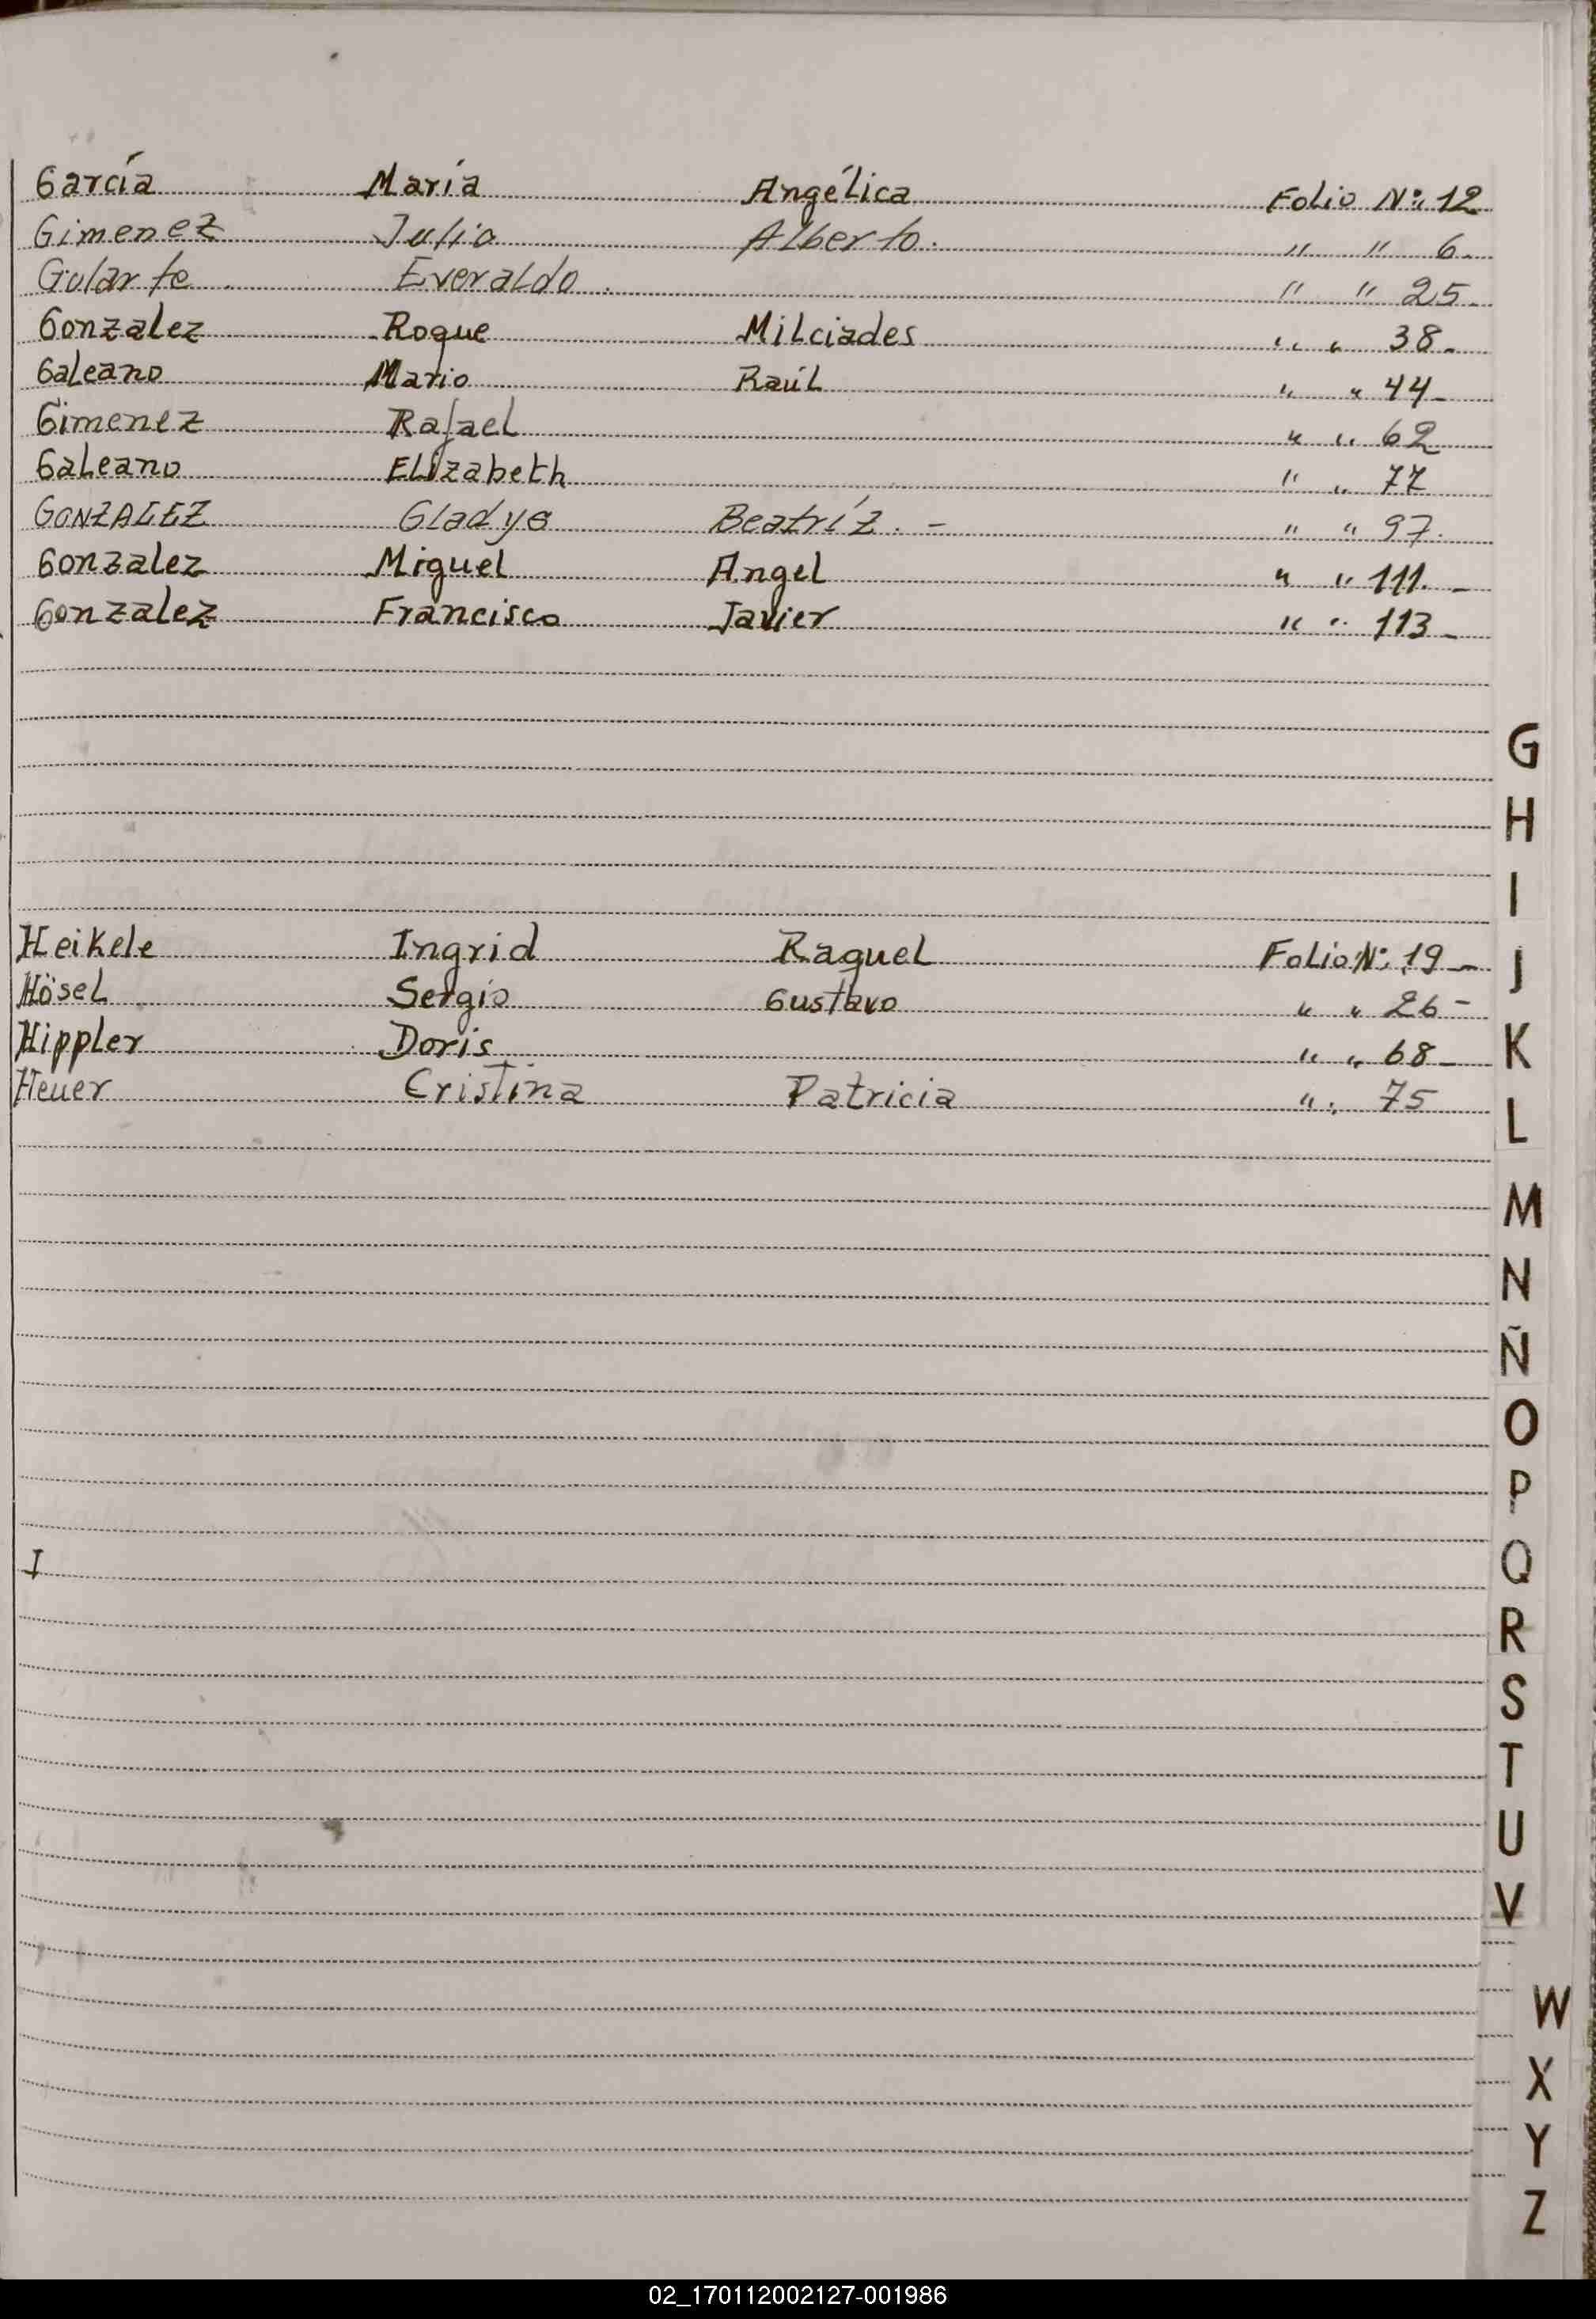 García María Angélica Folio Nº 12
Gimenez Julio Alberto. " " 6.
Gularte Everaldo. " " 25.
Gonzalez Roque Milciades " " 38.
Galeano Mario Raúl " " 44.
Gimenez Rafael " " 62
Galeano Elizabeth " " 77
GONZALEZ Gladys Beatríz. - " " 97.
Gonzalez Miguel Angel " " 111. -
Gonzalez Francisco Javier " " 113 -
Heikele Ingrid Raquel Folio Nº 19 -
Hösel Sergio Gustavo " " 26 -
Hippler Doris " " 68 -
Heuer Cristina Patricia " " 75
I
G
H
I
J
K
L
M
N
Ñ
O
P
Q
R
S
T
U
V
W
X
Y
Z
02_170112002127-001986